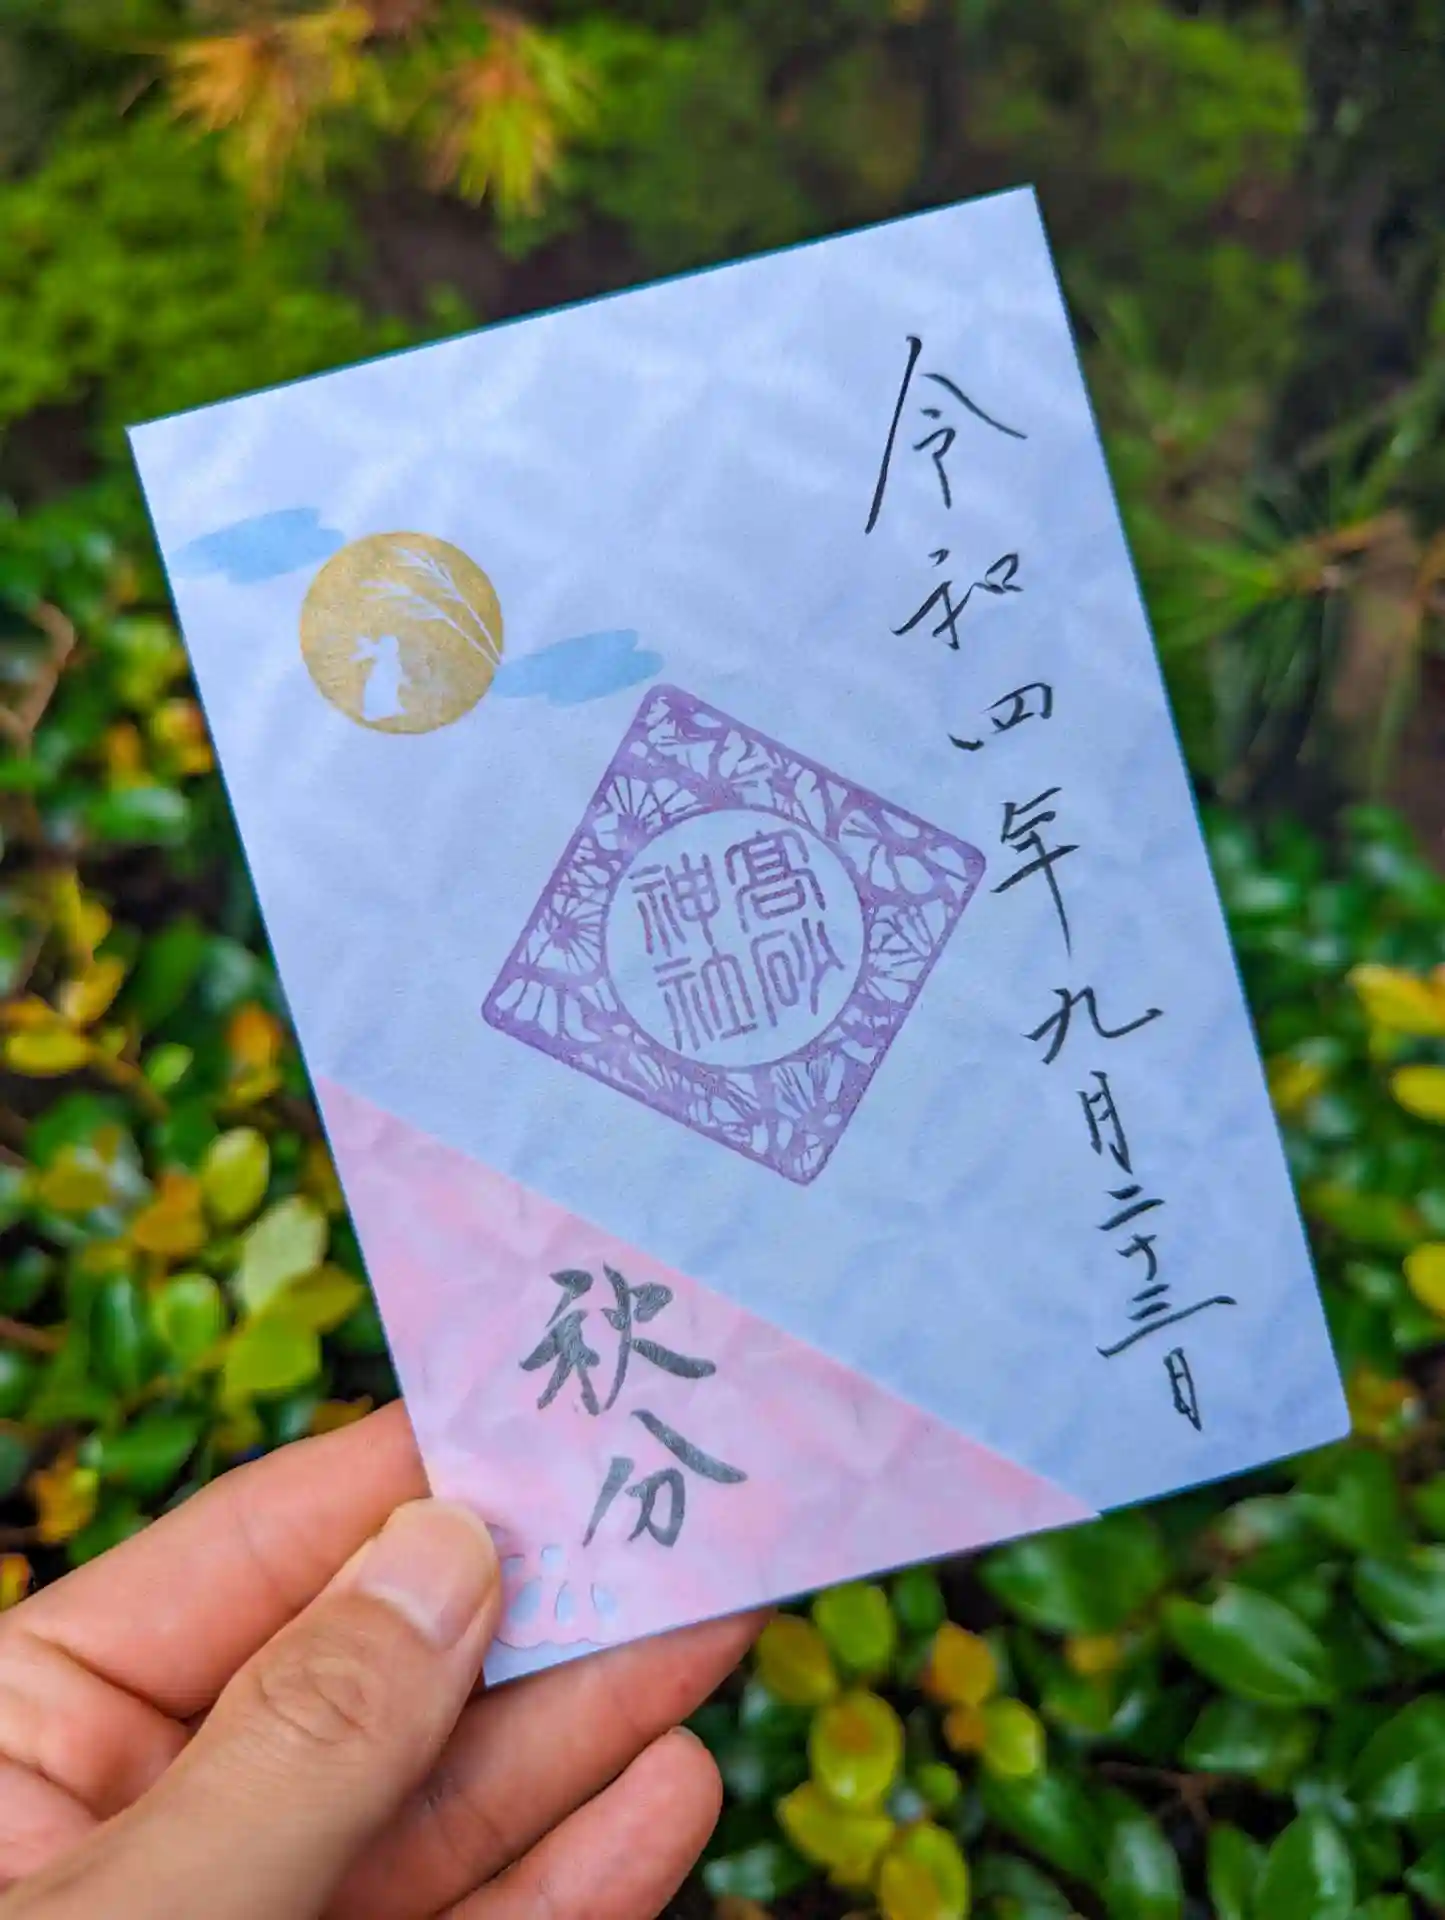 令和四年九月二十三日
髙砂
神社
秋分